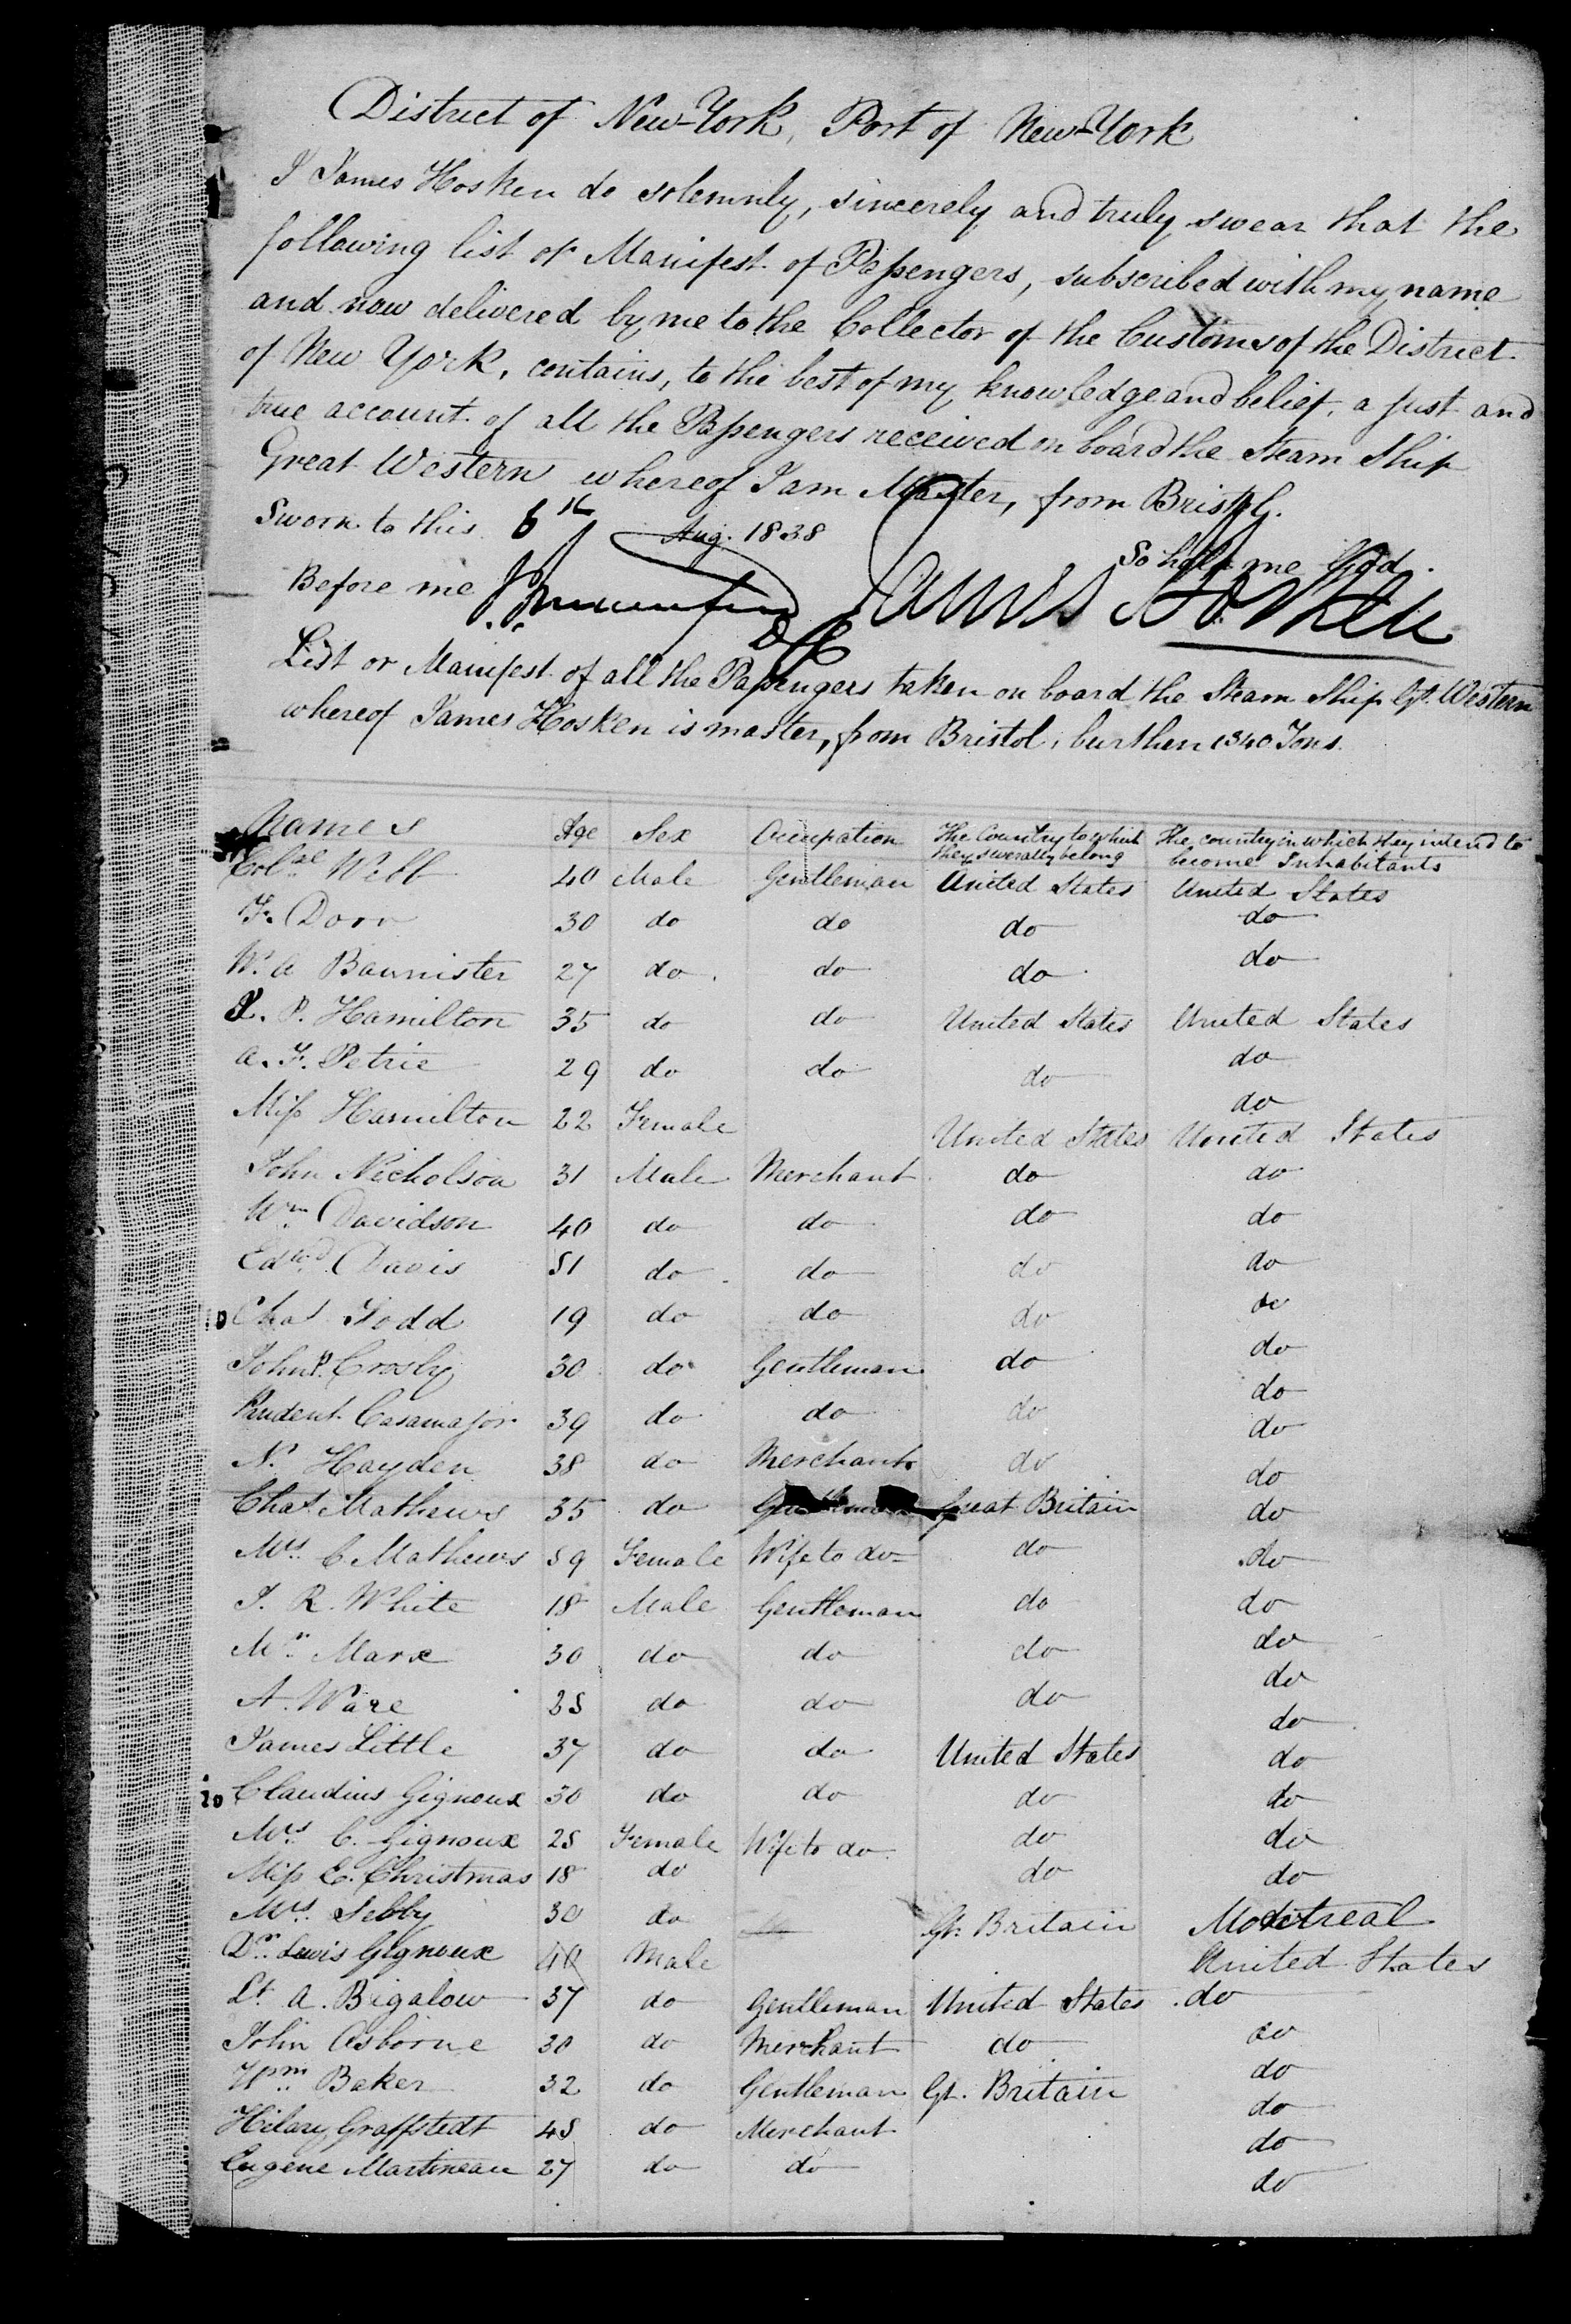 District of New-York, Port of New-York
I James Hosken do solemnly, sincerely and truly swear that the
following list or Manifest of Passengers, subscribed with my name
and now delivered by me to the Collector of the Customs of the District
of New York, contains, to the best of my knowledge and belief, a just and
true account of all the Passengers received on board the Steam Ship
Great Western whereof I am Master, from Bristol.
Sworn to this 6th Aug. 1838
So help me God.
Before me
James Hosken
List or Manifest of all the Passengers taken on board the Steam Ship Gt. Western
whereof James Hosken is master, from Bristol, burthen 1340 Tons.
Names Age Sex Occupation The Country to which they severally belong The country in which they intend to become Inhabitants
Webb 40 Male Gentleman United States United States
F. Dorr 30 do do do do
W. A Bannister 27 do do do do
P. Hamilton 35 do do United States United States
A. F. Petrie 29 do do do do
do
Miss Hamilton 22 Female United States United States
John Nicholson 31 Male Merchant do do
Wm Davidson 40 do do do do
Edwd Davis 51 do do do do
10 Chas Todd 19 do do do do
John P. Crosby 30 do Gentleman do do
Prudent Casamajor 39 do do do do
do
N. Hayden 38 do Merchant do do
Chas Mathews 35 do Gentleman Great Britain do
Mrs. C. Mathews 39 Female Wife to do do do
J. R. White 18 Male Gentleman do do
Mr. Marx 30 do do do do
A. Ware 25 do do do do
do
James Little 37 do do United States do
20 Claudius Gignoux 30 do do do do
Mrs. C. Gignoux 25 Female Wife to do do do
Miss E. Christmas 18 do do do
Mrs. Sebby 30 do Gt. Britain Montreal
Dr. Lewis Gignoux 40 Male United States
Lt. A. Bigalow 37 do Gentleman United States do
John Osborne 30 do Merchant do do
Wm. Baker 32 do Gentleman Gt. Britain do
do
Hilary Graffstedt 45 do Merchant do
Eugene Martineau 27 do do do